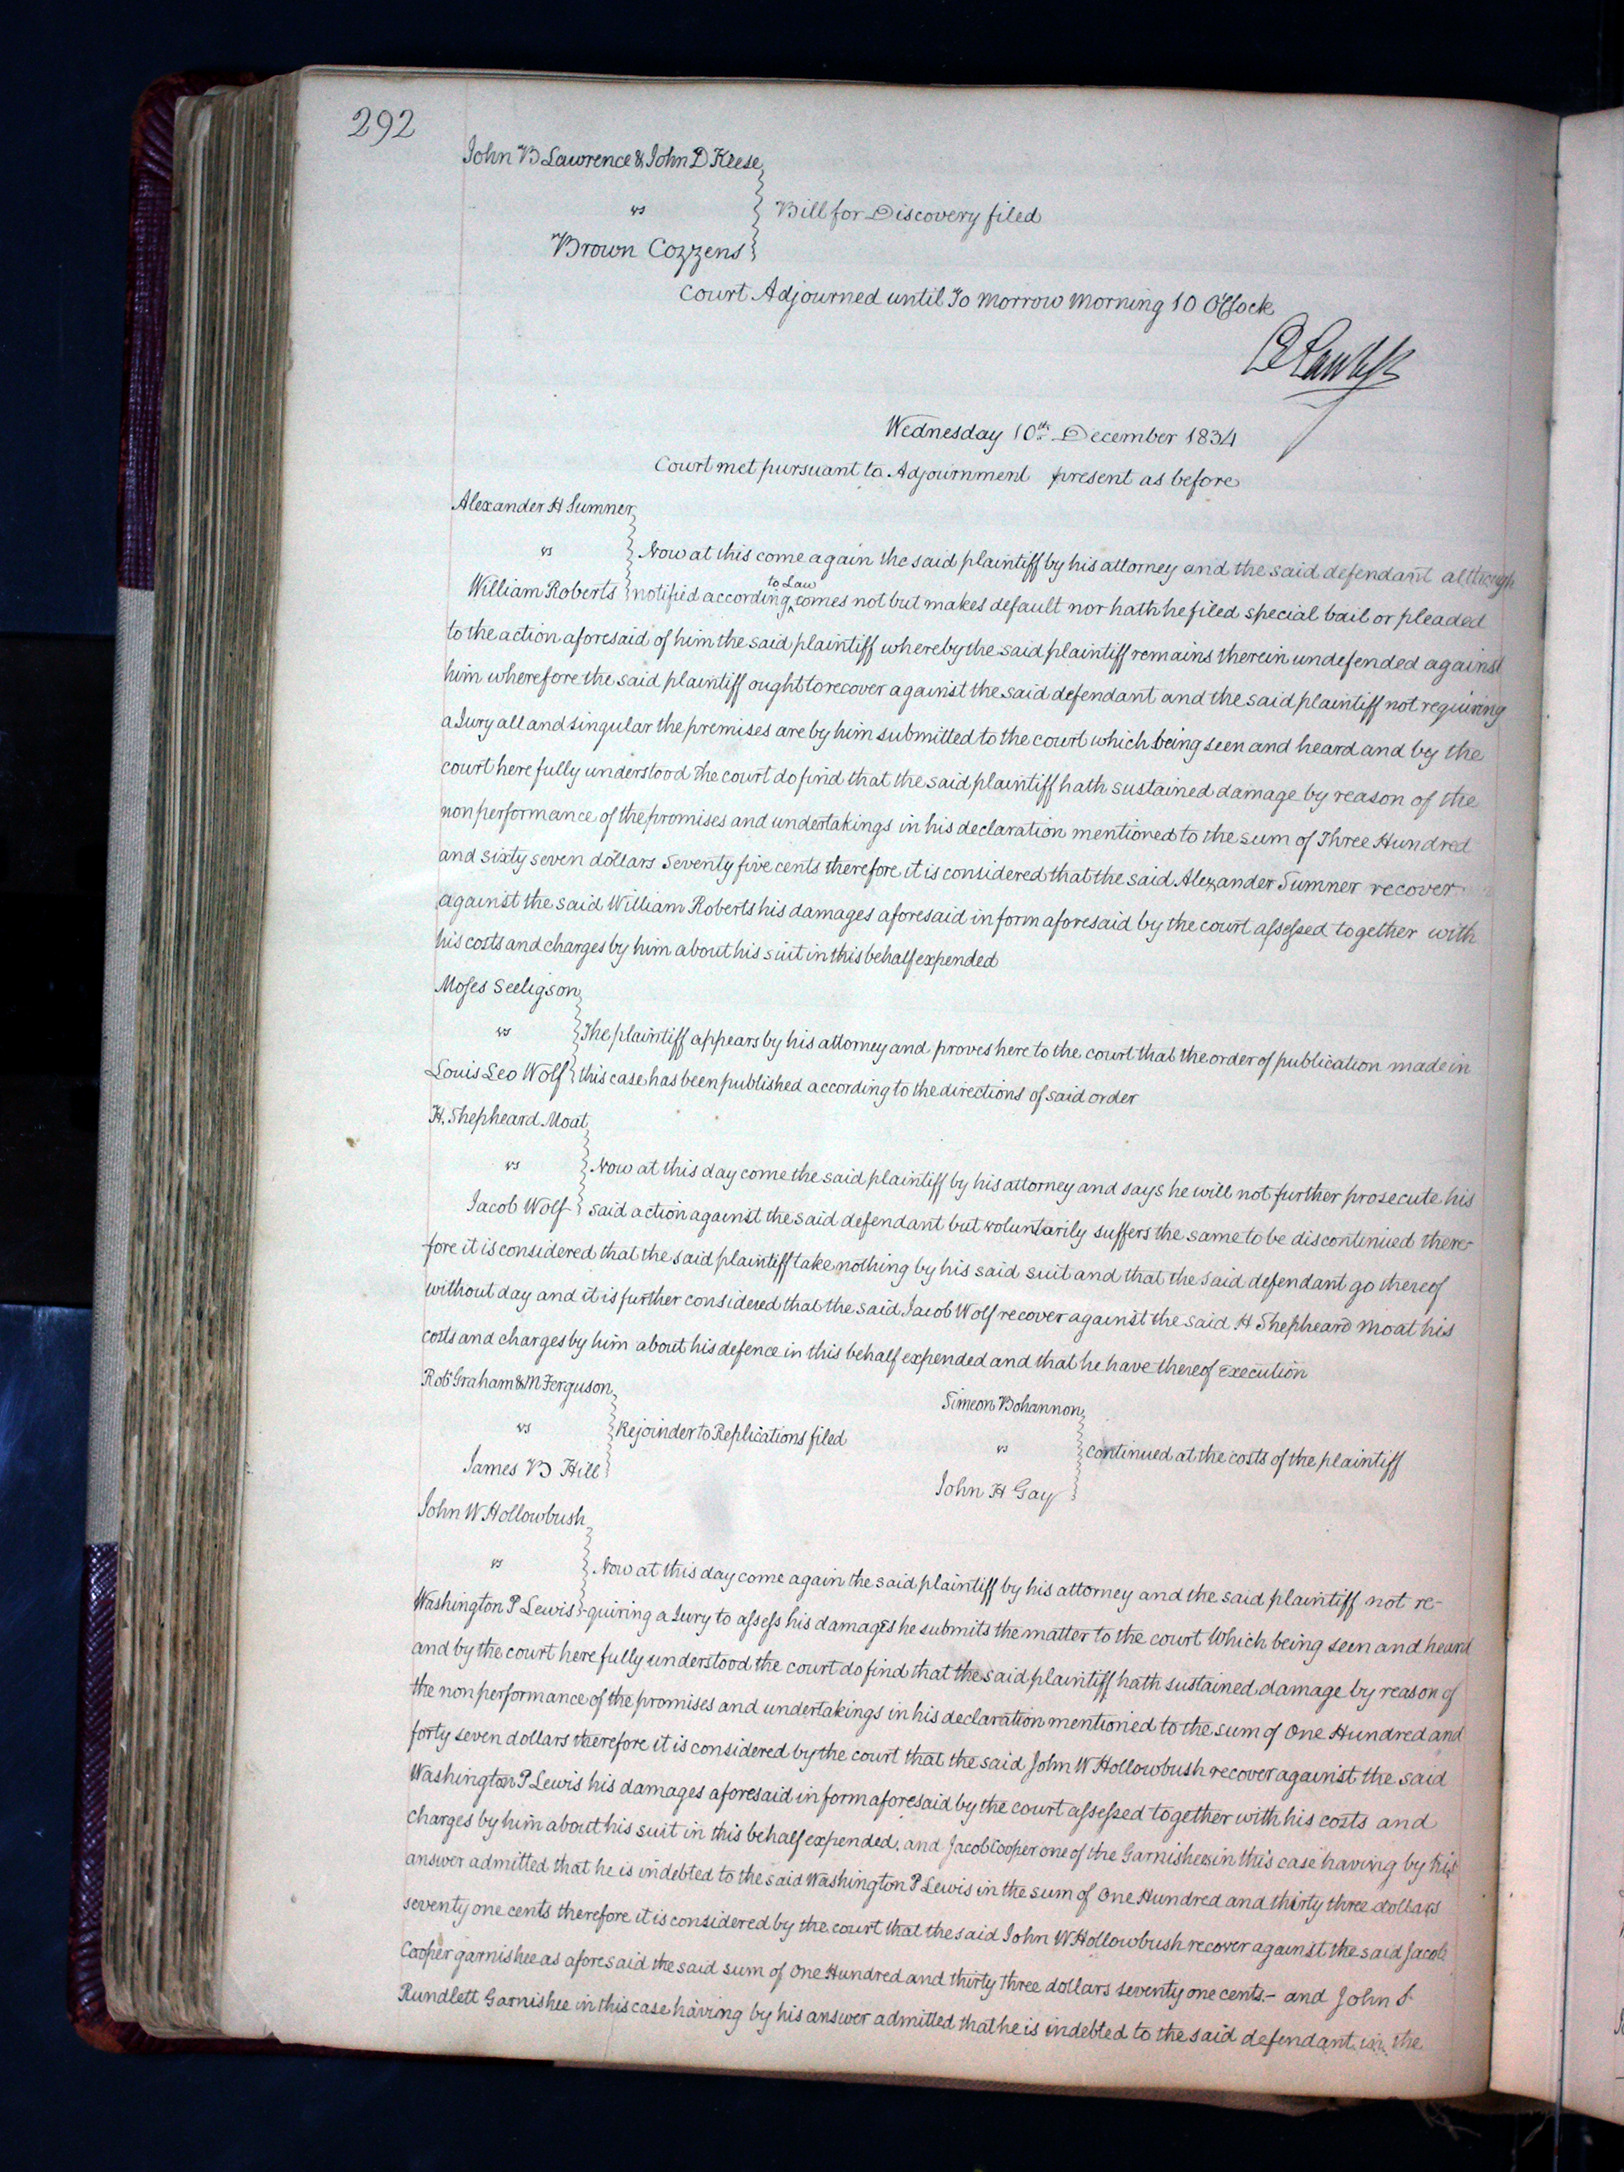 292
John B Lawrence & John D Keese
vs
Bill for Discovery filed
Brown Cozzens
Court Adjourned until To morrow Morning 10 O'Clock
Wednesday 10th December 1834
Court met pursuant to Adjournment present as before
Alexander H Sumner
vs
Now at this come again the said plaintiff by his attorney and the said defendant although
William Roberts notified according to Law comes not but makes default nor hath he filed special bail or pleaded
to the action aforesaid of him the said plaintiff whereby the said plaintiff remains therein undefended against
him wherefore the said plaintiff ought to recover against the said defendant and the said plaintiff not requiring
a Jury all and singular the premises are by him submitted to the court which being seen and heard and by the
court here fully understood the court do find that the said plaintiff hath sustained damage by reason of the
non performance of the promises and undertakings in his declaration mentioned to the sum of Three Hundred
and sixty seven dollars Seventy five cents therefore it is considered that the said Alexander Sumner recover
against the said William Roberts his damages aforesaid in form aforesaid by the court assessed together with
his costs and charges by him about his suit in this behalf expended
Moses Seeligson
vs
The plaintiff appears by his attorney and proves here to the court that the order of publication made in
Louis Leo Wolf this case has been published according to the directions of said order
H. Shepheard Moat
vs
Now at this day come the said plaintiff by his attorney and says he will not further prosecute his
Jacob Wolf said action against the said defendant but voluntarily suffers the same to be discontinued there-
fore it is considered that the said plaintiff take nothing by his said suit and that the said defendant go thereof
without day and it is further considered that the said Jacob Wolf recover against the said H Shepheard Moat his
costs and charges by him about his defence in this behalf expended and that he have thereof Execution
Robt Graham & M Ferguson
vs
Rejoinder to Replications filed
James B Hill
Simeon Bohannon
vs
Continued at the costs of the plaintiff
John H Gay
John W Hollowbush
vs
Now at this day come again the said plaintiff by his attorney and the said plaintiff not re-
Washington P Lewis -quiring a Jury to assess his damages he submits the matter to the court Which being seen and heard
and by the court here fully understood the court do find that the said plaintiff hath sustained damage by reason of
the non performance of the promises and undertakings in his declaration mentioned to the sum of One Hundred and
forty seven dollars therefore it is considered by the court that the said John W Hollowbush recover against the said
Washington P Lewis his damages aforesaid in form aforesaid by the court assessed together with his costs and
charges by him about his suit in this behalf expended, and Jacob Cooper one of the Garnishees in this case having by his
answer admitted that he is indebted to the said Washington P Lewis in the sum of One Hundred and thirty three dollars
seventy one cents therefore it is considered by the court that the said John W Hollowbush recover against the said Jacob
Cooper garnishee as aforesaid the said sum of One Hundred and thirty three dollars seventy one cents.- and John S
Rundlett Garnishee in this case having by his answer admitted that he is indebted to the said defendant in the